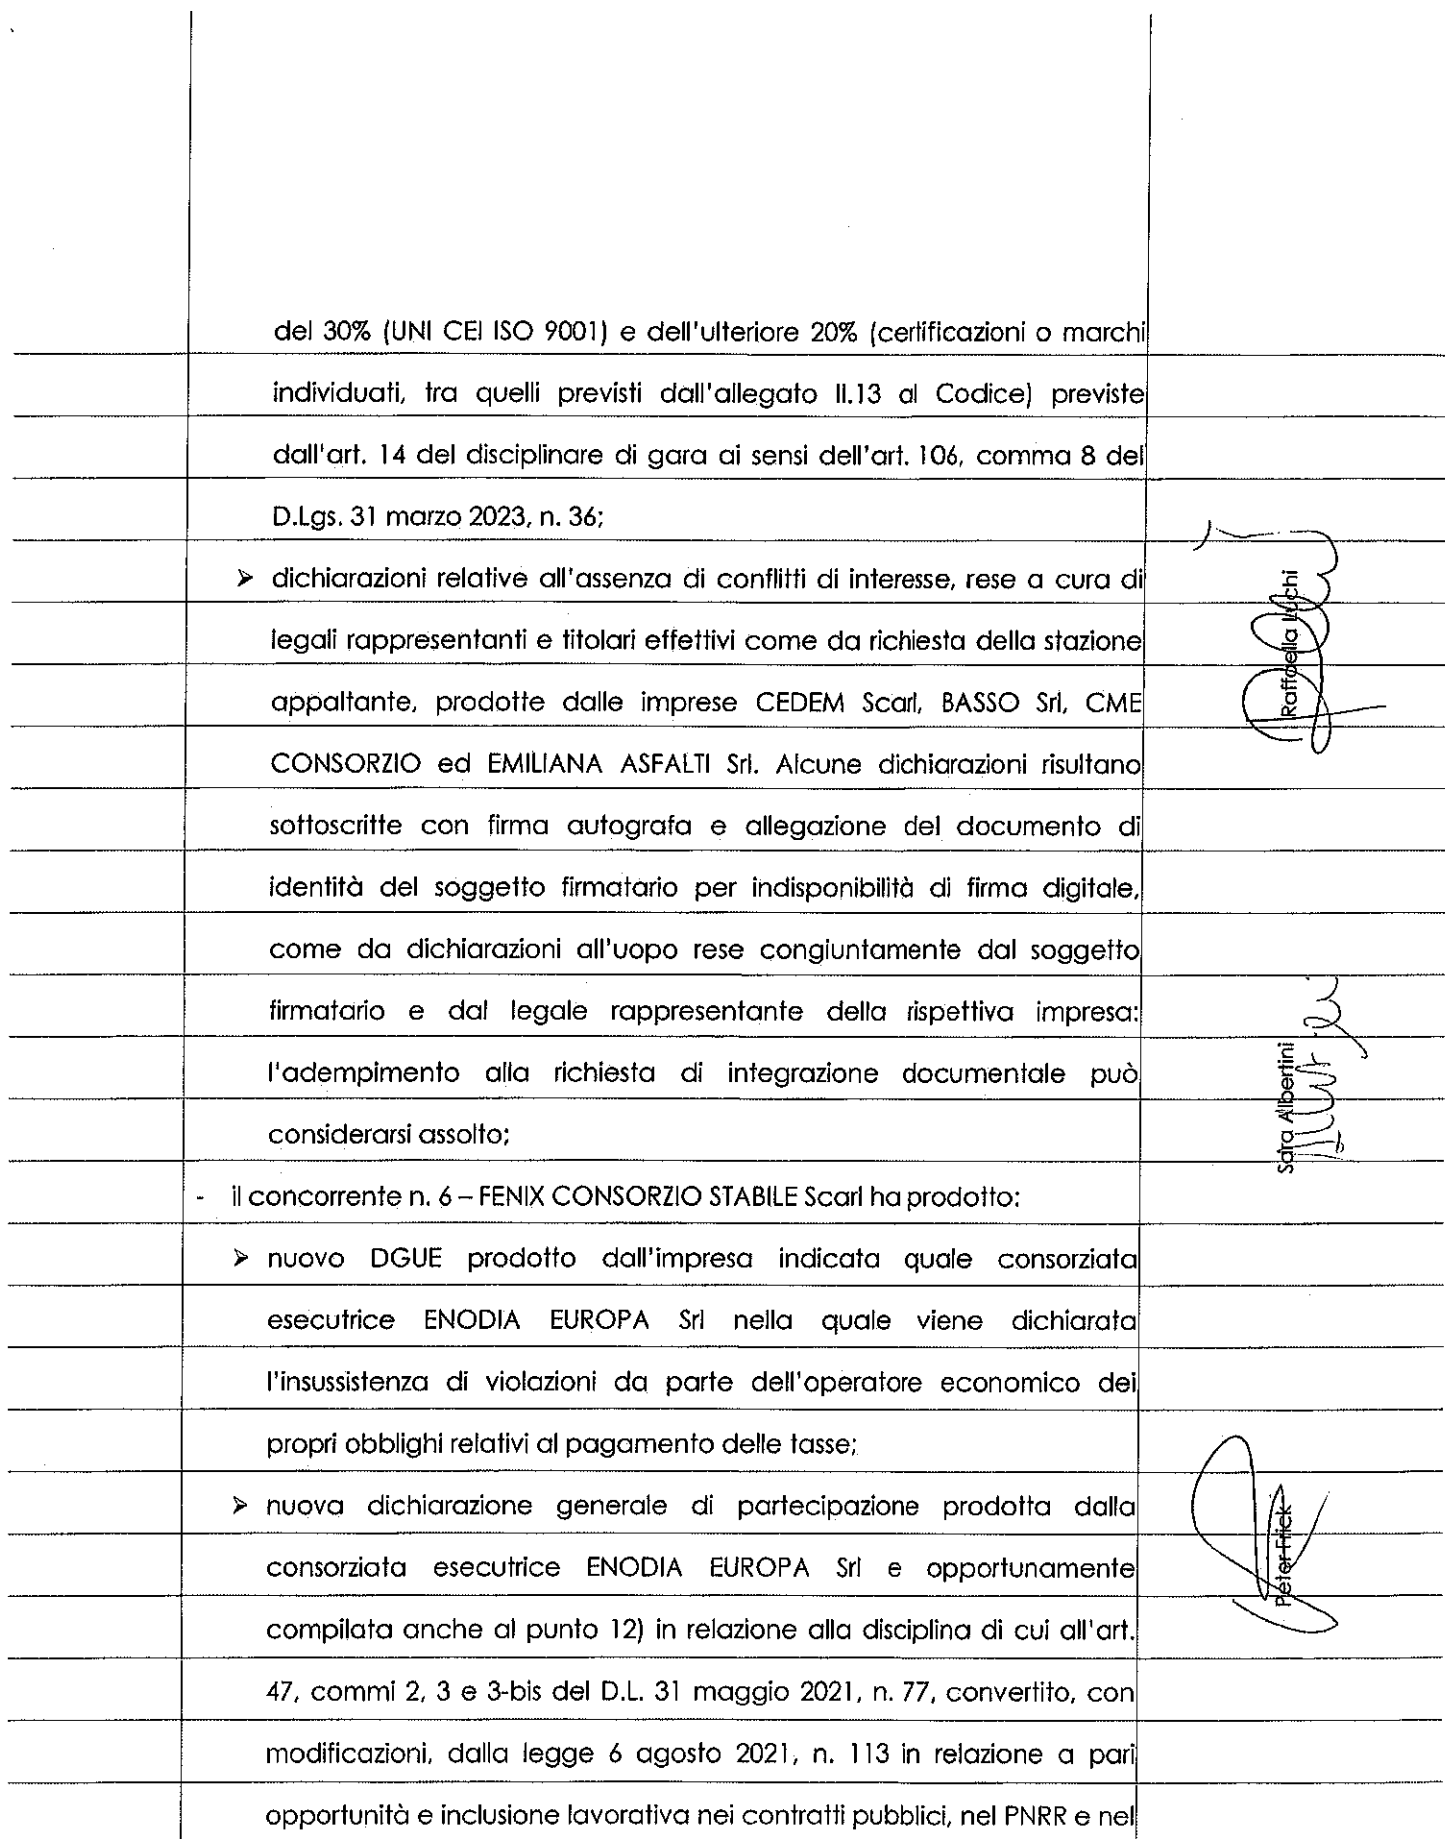 del 30% (UNI CEI ISO 9001) e dell'ulteriore 20% (certificazioni o marchi
individuati, tra quelli previsti dall'allegato II.13 al Codice) previste
dall'art. 14 del disciplinare di gara ai sensi dell'art. 106, comma 8 del
D.Lgs. 31 marzo 2023, n. 36;
➢ dichiarazioni relative all'assenza di conflitti di interesse, rese a cura di
legali rappresentanti e titolari effettivi come da richiesta della stazione
appaltante, prodotte dalle imprese CEDEM Scarl, BASSO Srl, CME
CONSORZIO ed EMILIANA ASFALTI Srl. Alcune dichiarazioni risultano
sottoscritte con firma autografa e allegazione del documento di
identità del soggetto firmatario per indisponibilità di firma digitale,
come da dichiarazioni all'uopo rese congiuntamente dal soggetto
firmatario e dal legale rappresentante della rispettiva impresa:
l'adempimento alla richiesta di integrazione documentale può
considerarsi assolto;
- il concorrente n. 6 – FENIX CONSORZIO STABILE Scarl ha prodotto:
➢ nuovo DGUE prodotto dall'impresa indicata quale consorziata
esecutrice ENODIA EUROPA Srl nella quale viene dichiarata
l'insussistenza di violazioni da parte dell'operatore economico dei
propri obblighi relativi al pagamento delle tasse;
➢ nuova dichiarazione generale di partecipazione prodotta dalla
consorziata esecutrice ENODIA EUROPA Srl e opportunamente
compilata anche al punto 12) in relazione alla disciplina di cui all'art.
47, commi 2, 3 e 3-bis del D.L. 31 maggio 2021, n. 77, convertito, con
modificazioni, dalla legge 6 agosto 2021, n. 113 in relazione a pari
opportunità e inclusione lavorativa nei contratti pubblici, nel PNRR e nel
Raffaella Luchi
Sara Albertini
Peter Frick